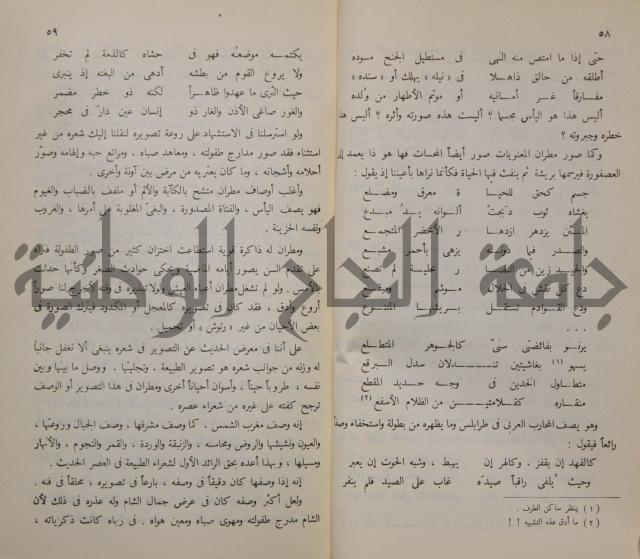 ٥٨
حتى إذا ما امتص منه النهى في مستطيل الجنح مسوده
أطلقه من حالق ذاهلا في «نيله» يهلك أو «سنده»
مفارقاً غر أمانيه أو موتم الأطهار من ولده
أليس هذا هو اليأس مجسما ؟ أليست هذه صورته وأثره ؟ أليس هذا
خطره وجبروته ؟
وكما صور مطران المعنويات صور أيضاً المحسات فها هو ذا يعمد إلى
العصفورة فيرسمها بريشة ثم ينفث فيها الحياة فكأنما نراها بأعيننا إذ يقول :
جسم كحق للحيا ة معرق ومضلع
يغشاه ثوب دبجت ألوانه يد مبدع
المتن يزدهر ازدها ر الأخضر المتجمع
والصدر فيما دونه يزهى بأحمر مشبع
والجيد زين من النضا ر بحلية لم تصنع
ودع القوادم تستقل
. . .
يرنو بفائضتي سنى كالجوهر المتطلع
يسهو (١) بغاشيتين تنسدلان سدل البرقع
متطاول الخدين في وجه حديد المقطع
منقاره كقلامتين من الظلام الأسفع (٢)
وهو يصف المحارب العربي في طرابلس وما يظهره من بطولة واستخفاء وصفاً
رائعاً فيقول :
كالفهد إن يقفز . وكالهر إن يهبط ، وشبه الحوت إن يعبر
وحيث يُلفى راقباً صيده غاب على الصيد فلم ينفر
(١) ينظر ساكن الطرف .
(٢) ما أدق هذه التشبيه ! !
٥٩
يكتمه موضعه فهو في حشاه كالذمة لم تخفر
ولا يروع القوم من بطشه أدهى من البغتة إذ ينبرى
حيث الثرى ما عهدوا ظاهراً لكنه ذو خطر مضمر
والغور صاغى الأذن والغار ذو إنسان عين دار في محجر
ولو استرسلنا في الاستشهاد على روعة تصويره لنقلنا إليك شعره من غير
استثناء فقد صور مدارج طفولته ، ومعاهد صباه ، ومراتع حبه وإلهامه وصوّر
أحلامه وأشجانه ، وما كان يعتريه من مرض بين آونة وأخرى .
وأغلب أوصاف مطران متشح بالكآبة والألم أو ملفف بالضباب والغيوم
فهو يصف اليأس ، والفتاة المصدورة ، والبغيّ المغلوبة على أمرها ، والغروب
ونفسه الحزينة .
ومطران له ذاكرة قوية استطاعت اختزان كثير من صور الطفولة فتراه
على تقدم السن يصور أيامه الماضية ويحكى حوادث الصغر وكأنها حدثت
بالأمس . ولو لم تشغل مطران أعباء العيش ولولا تقتيره في وقته لأخرج لنا صوراً
أروع وأدق ، فقد كان في تصويره كالمعجل أو المكدود فيترك الصورة في
بعض الأحيان من غير «رتوش» أو تجميل .
على أننا في معرض الحديث عن التصوير في شعره ينبغى ألا نغفل جانباً
له وزنه من جوانب شعره هو تصوير الطبيعة ، وتجليتها ، ووصل ما بينها وبين
نفسه ، طروباً حيناً ، وأسوان أحياناً أخرى ومطران في هذا التصوير أو الوصف
ترجح كفته على غيره من شعراء عصره .
إنه وصف مغرب الشمس ، كما وصف مشرقها ، وصف الجبال وروعتها ،
والعيون ونشيشها والروض ومحاسنه ، والزنبقة والوردة ، والقمر والنجوم ، والأنهار
ومسيلها ، وبهذا أعده بحق الرائد الأول لشعراء الطبيعة في العصر الحديث .
إنه إذا وصفها كان دقيقاً في وصفه ، بارعاً في تصويره ، محلقاً في فنه .
ولعل أكثر وصفه كان في عرض جمال الشام وله عذره في ذلك لأن
الشام مدرج طفولته ومهوى صباه ومعين هواه . في رباه كانت ذكرياته ،
جامعة النجاح الوطنية